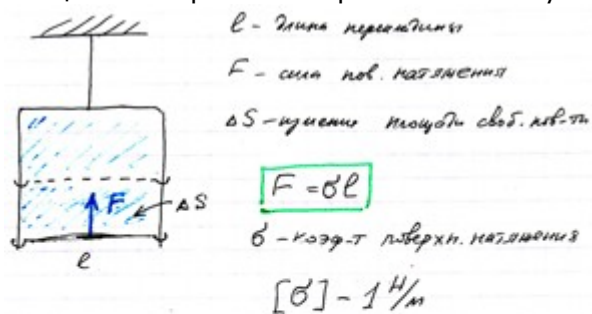 l - длина перекладины
F - сила пов. натяжения
ΔS - изменение площади своб. пов-ти
F
ΔS
F = σl
l
σ - коэф-т поверхн. натяжения
[σ] - 1 Н/м